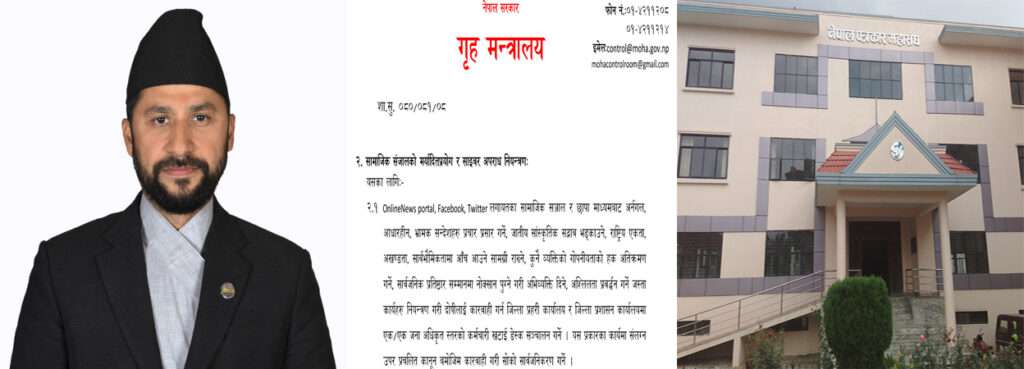 नेपाल सरकार
गृह मन्त्रालय
फोन नं.:०१-४२११२०८
०१-४२११२१४
इमेल:control@moha.gov.np
mohacontrolroom@gmail.com
शा.सु. ०८०/०८१/०८
२. सामाजिक संजालको मर्यादितप्रयोग र साइबर अपराध नियन्त्रणः
यसका लागिः-
२.१ OnlineNews portal, Facebook, Twitter लगायतका सामाजिक सञ्जाल र छापा माध्यमबाट अर्नगल,
आधारहीन, भ्रामक सन्देशहरु प्रचार प्रसार गर्ने, जातीय सांस्कृतिक सद्भाव भड्काउने, राष्ट्रिय एकता,
अखण्डता, सार्वभौमिकतामा आँच आउने सामग्री राख्ने, कुनै व्यक्तिको गोपनीयताको हक अतिक्रमण
गर्ने, सार्वजनिक प्रतिष्ठार सम्मानमा नोक्सान पुग्ने गरी अभिव्यक्ति दिने, अश्लिलता प्रबर्द्धन गर्ने जस्ता
कार्यहरु नियन्त्रण गरी दोषीलाई कारवाही गर्न जिल्ला प्रहरी कार्यालय र जिल्ला प्रशासन कार्यालयमा
एक/एक जना अधिकृत स्तरको कर्मचारी खटाई डेस्क सञ्चालन गर्ने । यस प्रकारका कार्यमा संलग्न
उपर प्रचलित कानून बमोजिम कारवाही गरी सोको सार्वजनिकरण गर्ने ।
नेपाल पत्रकार महासंघ